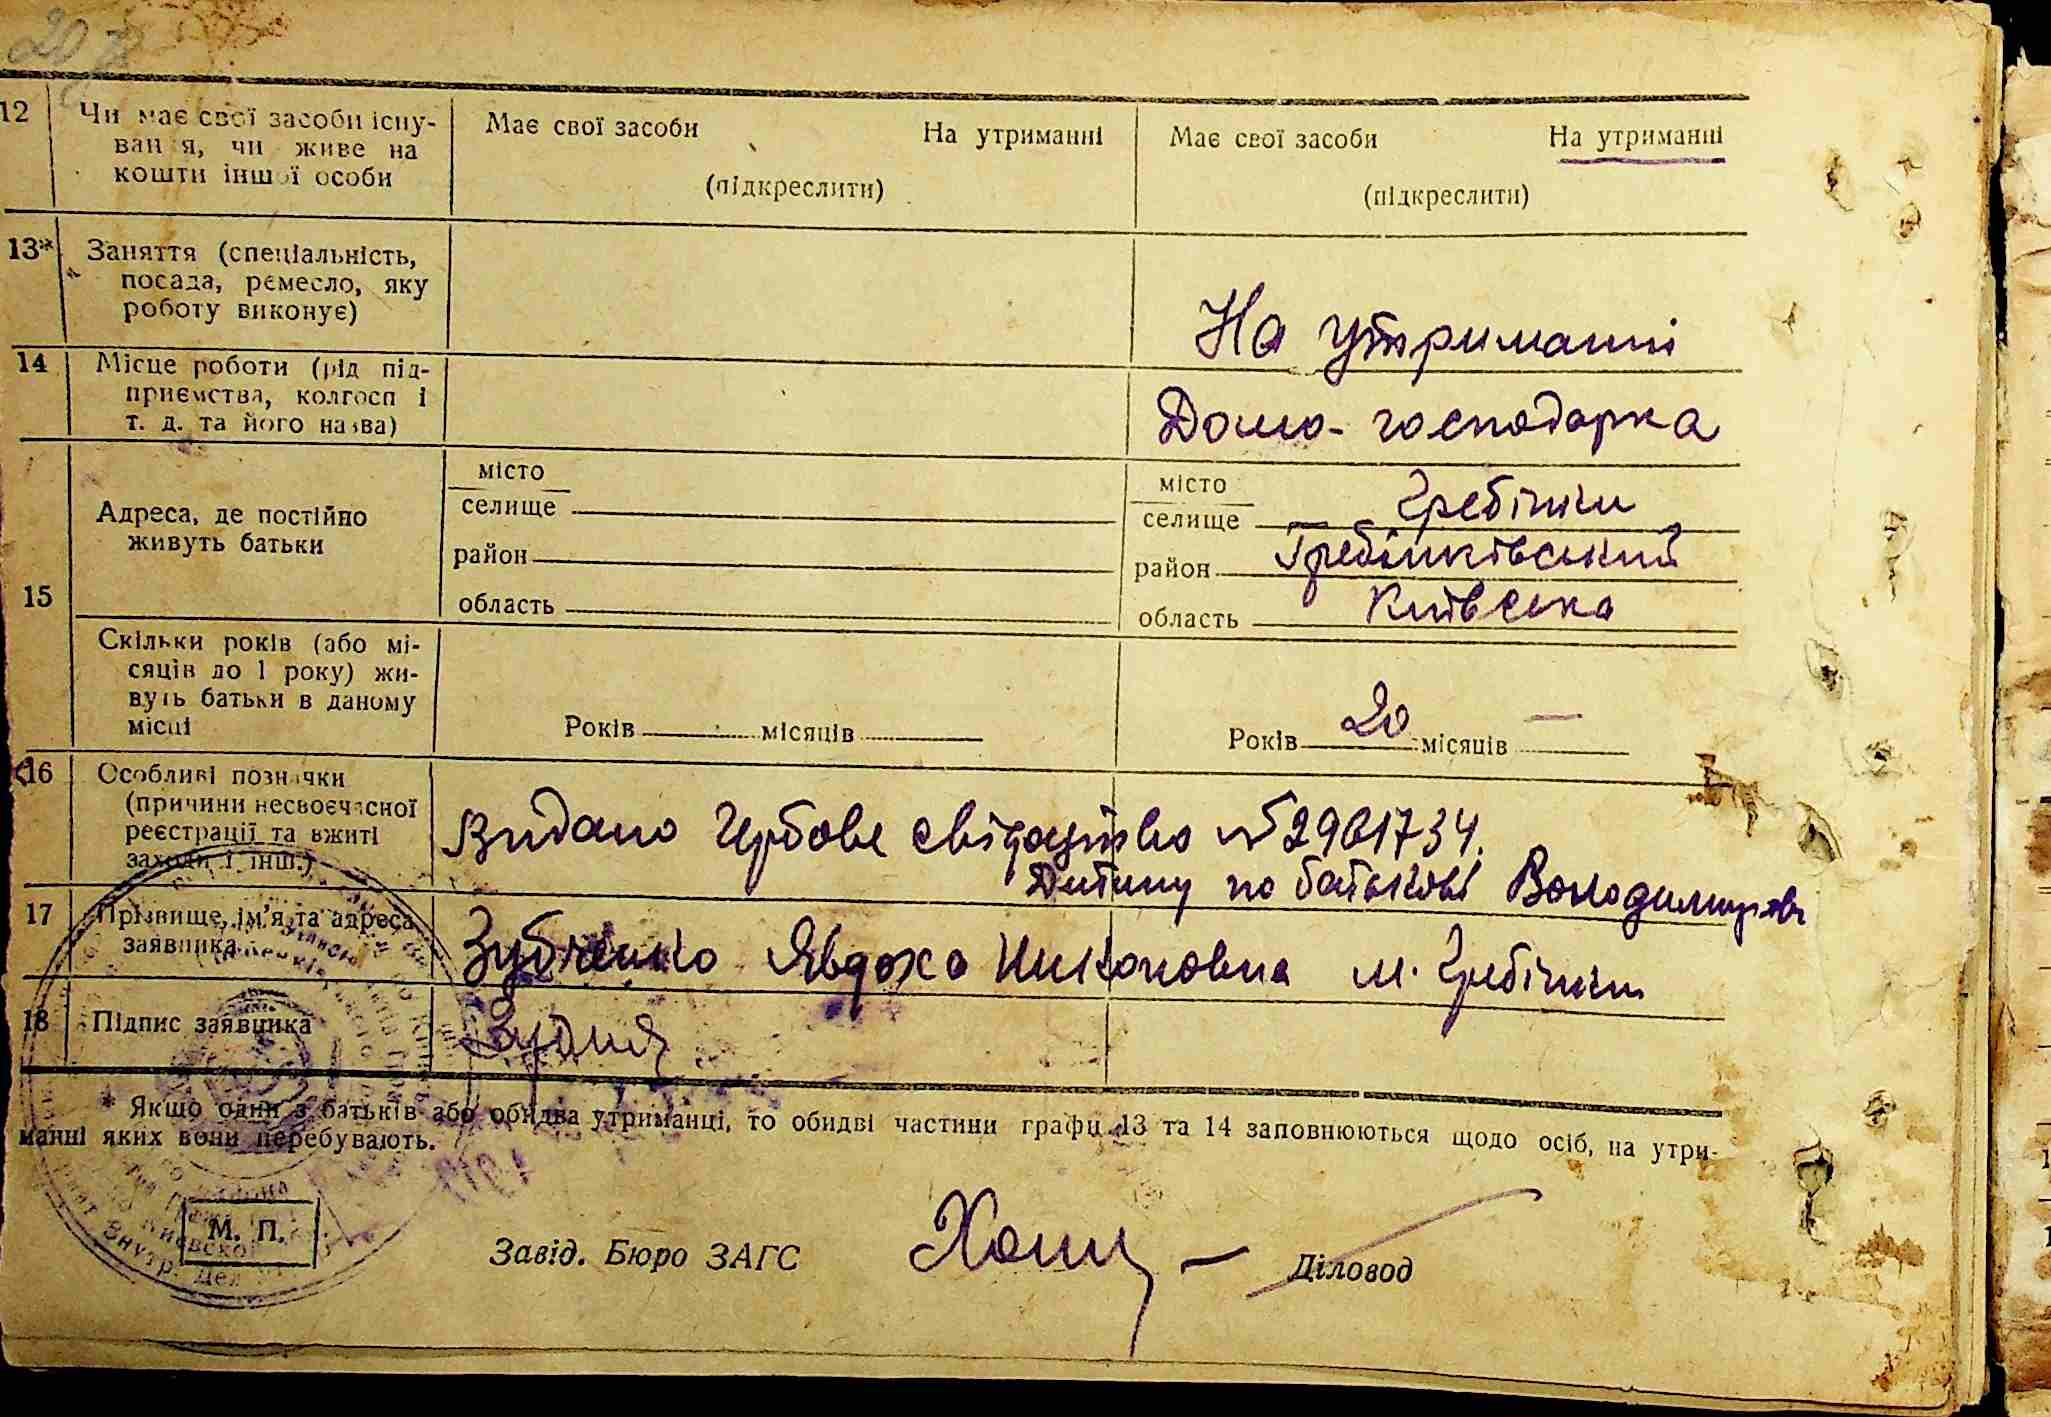 12 Чи має свої засоби існу- Має свої засоби На утриманні Має свої засоби На утриманні
вання, чи живе на
кошти іншої особи (підкреслити) (підкреслити)
13* Заняття (спеціальність,
посада, ремесло, яку
роботу виконує) На утриманні
14 Місце роботи (рід під-
приємства, колгосп і
т. д. та його назва) Домо-господарка
місто місто Гребінки
Адреса, де постійно селище селище
живуть батьки район район Гребінківський
15 область область Київська
Скільки років (або мі-
сяців до 1 року) жи-
вуть батьки в даному
місці Років місяців Років 20 місяців —
16 Особливі позначки
(причини несвоєчасної
реєстрації та вжиті
заходи і інш.) Видано гербове свідоцтво № 2961734.
Дитину по батькові Володимирів
17 Прізвище, ім'я та адреса
заявника Зубченко Явдоха Никоновна м. Гребінки
18 Підпис заявника
* Якщо один з батьків або обидва утриманці, то обидві частини графи 13 та 14 заповнюються щодо осіб, на утри-
манні яких вони перебувають.
М. П.
Завід. Бюро ЗАГС Діловод